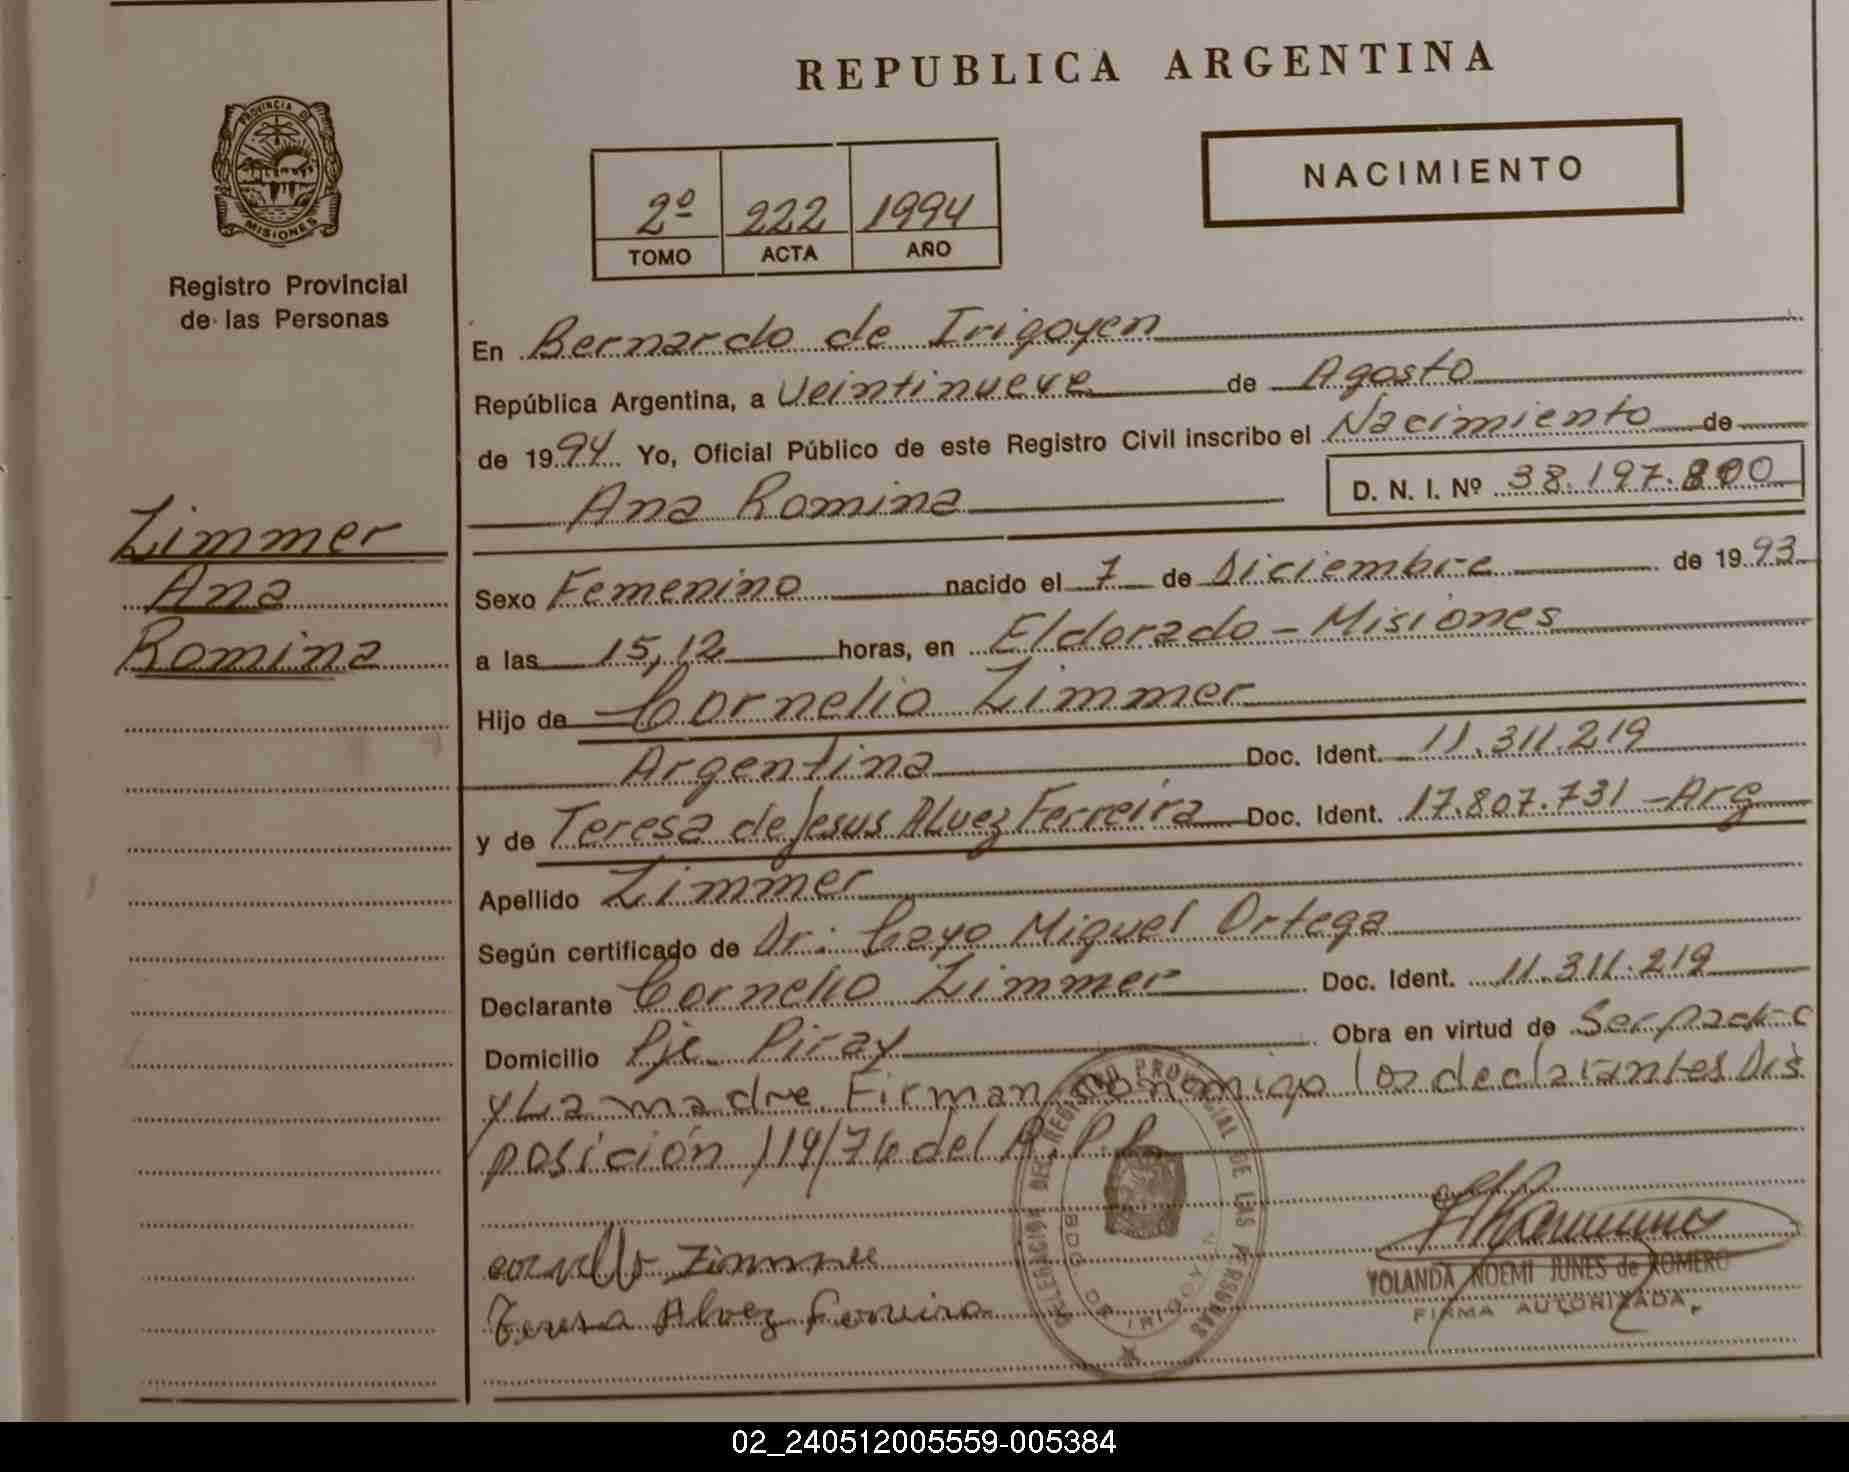 REPUBLICA ARGENTINA
PROVINCIA DE
MISIONES
Registro Provincial
de las Personas
NACIMIENTO
2º 222 1994
TOMO ACTA AÑO
En Bernardo de Irigoyen
República Argentina, a Veintinueve de Agosto
de 1994 Yo, Oficial Público de este Registro Civil inscribo el Nacimiento de
Ana Romina
D. N. I. Nº 38.197.800
Zimmer
Ana
Romina
Sexo Femenino nacido el 7 de Diciembre de 1993
a las 15,12 horas, en Eldorado - Misiones
Hijo de Cornelio Zimmer
Argentina Doc. Ident. 11.311.219
y de Teresa de Jesus Alvez Ferreira Doc. Ident. 17.807.731 - Arg
Apellido Zimmer
Según certificado de Dr: Coyo Miguel Ortega
Declarante Cornelio Zimmer Doc. Ident. 11.311.219
Domicilio Pje. Piray Obra en virtud de Ser padre
y La madre. Firman conmigo los declarantes Dis
posición 119/76 del R.P.P.
DELEGACION DEL REGISTRO PROVINCIAL DE LAS PERSONAS
BDO. DE IRIGOYEN
Zimmer
Teresa Alvez Ferreira
YOLANDA NOEMI JUNES de ROMERO
FIRMA AUTORIZADA
02_240512005559-005384